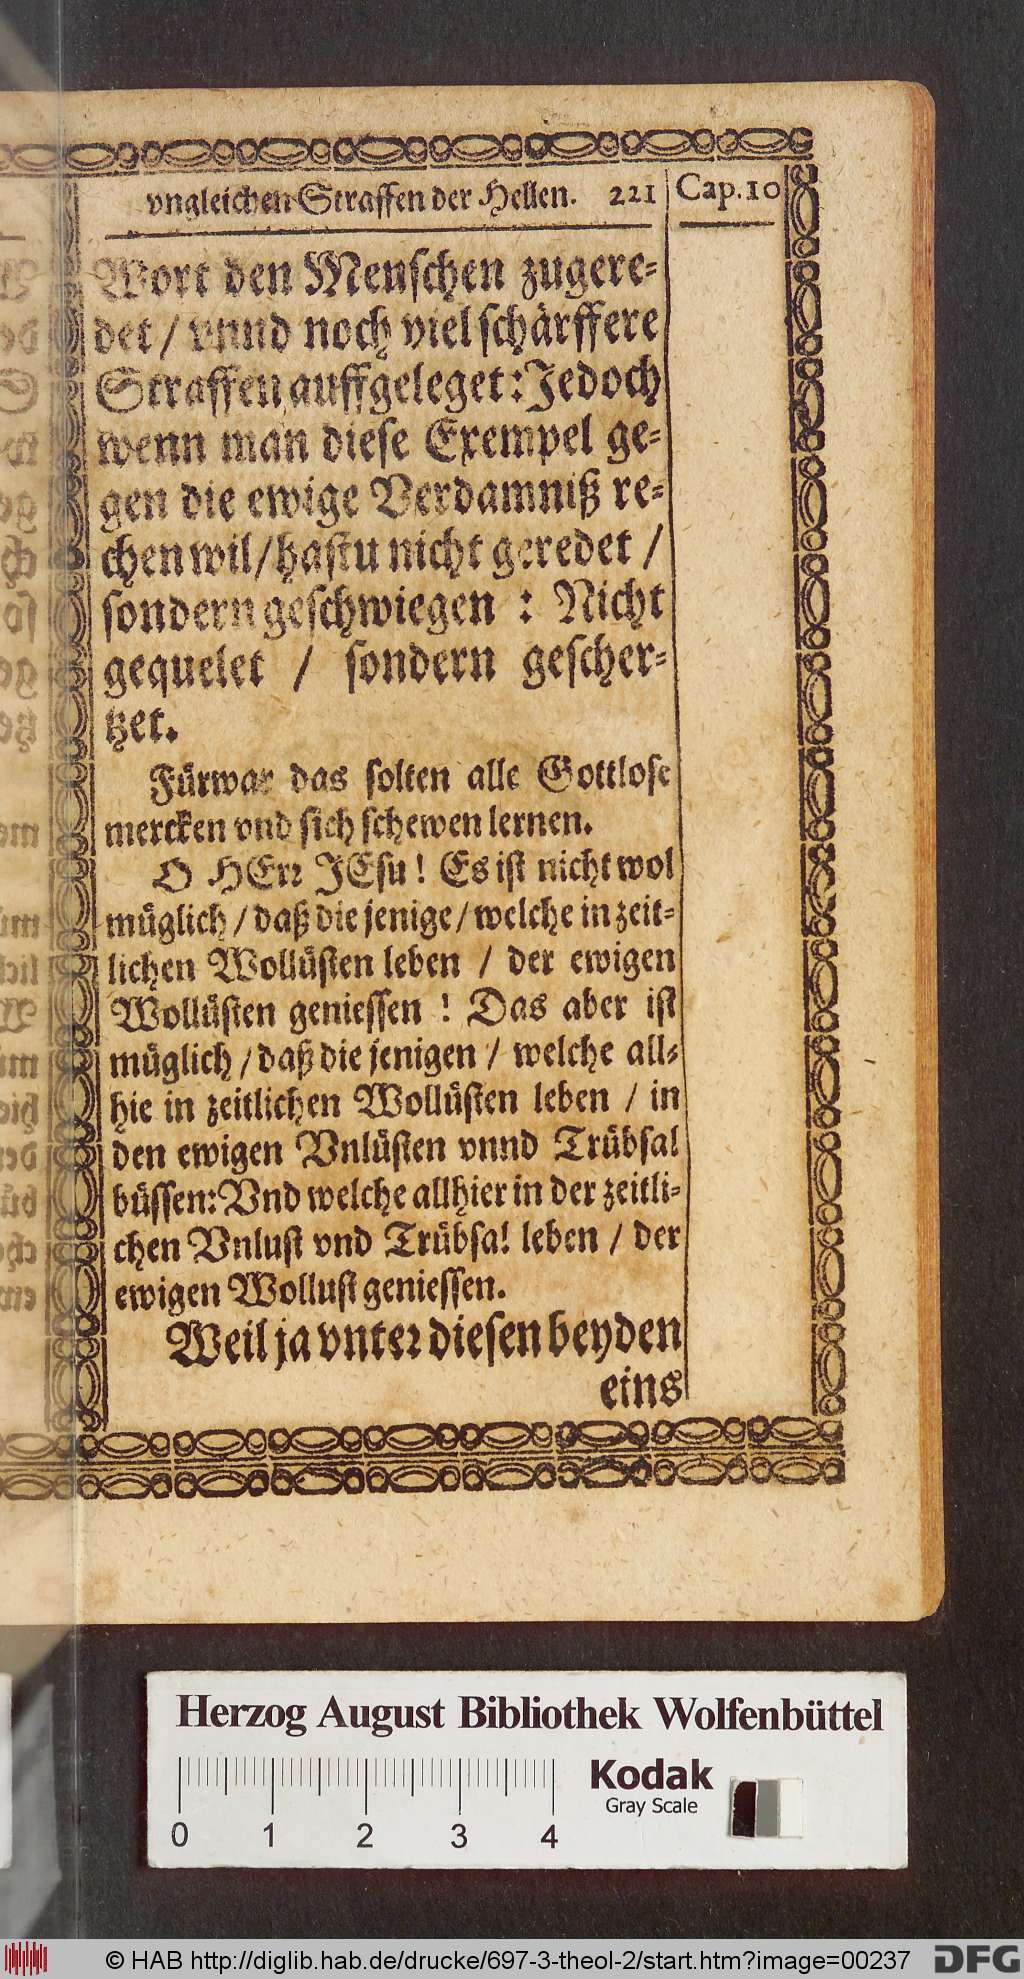 vngleichen Straffen der Hellen. 221 Cap. 10
Wort den Menschen zugere-
det / vnnd noch viel schärffere
Straffen auffgeleget: Jedoch
wenn man diese Exempel ge-
gen die ewige Verdamniß re-
chen wil / hastu nicht geredet /
sondern geschwiegen : Nicht
gequelet / sondern gescher-
tzet.
Fürwar das solten alle Gottlose
mercken vnd sich schewen lernen.
O HErr JEsu ! Es ist nicht wol
müglich / daß die jenige / welche in zeit-
lichen Wollüsten leben / der ewigen
Wollüsten geniessen ! Das aber ist
müglich / daß die jenigen / welche all-
hie in zeitlichen Wollüsten leben / in
den ewigen Vnlüsten vnnd Trübsal
büssen: Vnd welche allhier in der zeitli-
chen Vnlust vnd Trübsal leben / der
ewigen Wollust geniessen.
Weil ja vnter diesen beyden
eins
Herzog August Bibliothek Wolfenbüttel
Kodak
Gray Scale
0 1 2 3 4
© HAB http://diglib.hab.de/drucke/697-3-theol-2/start.htm?image=00237
DFG